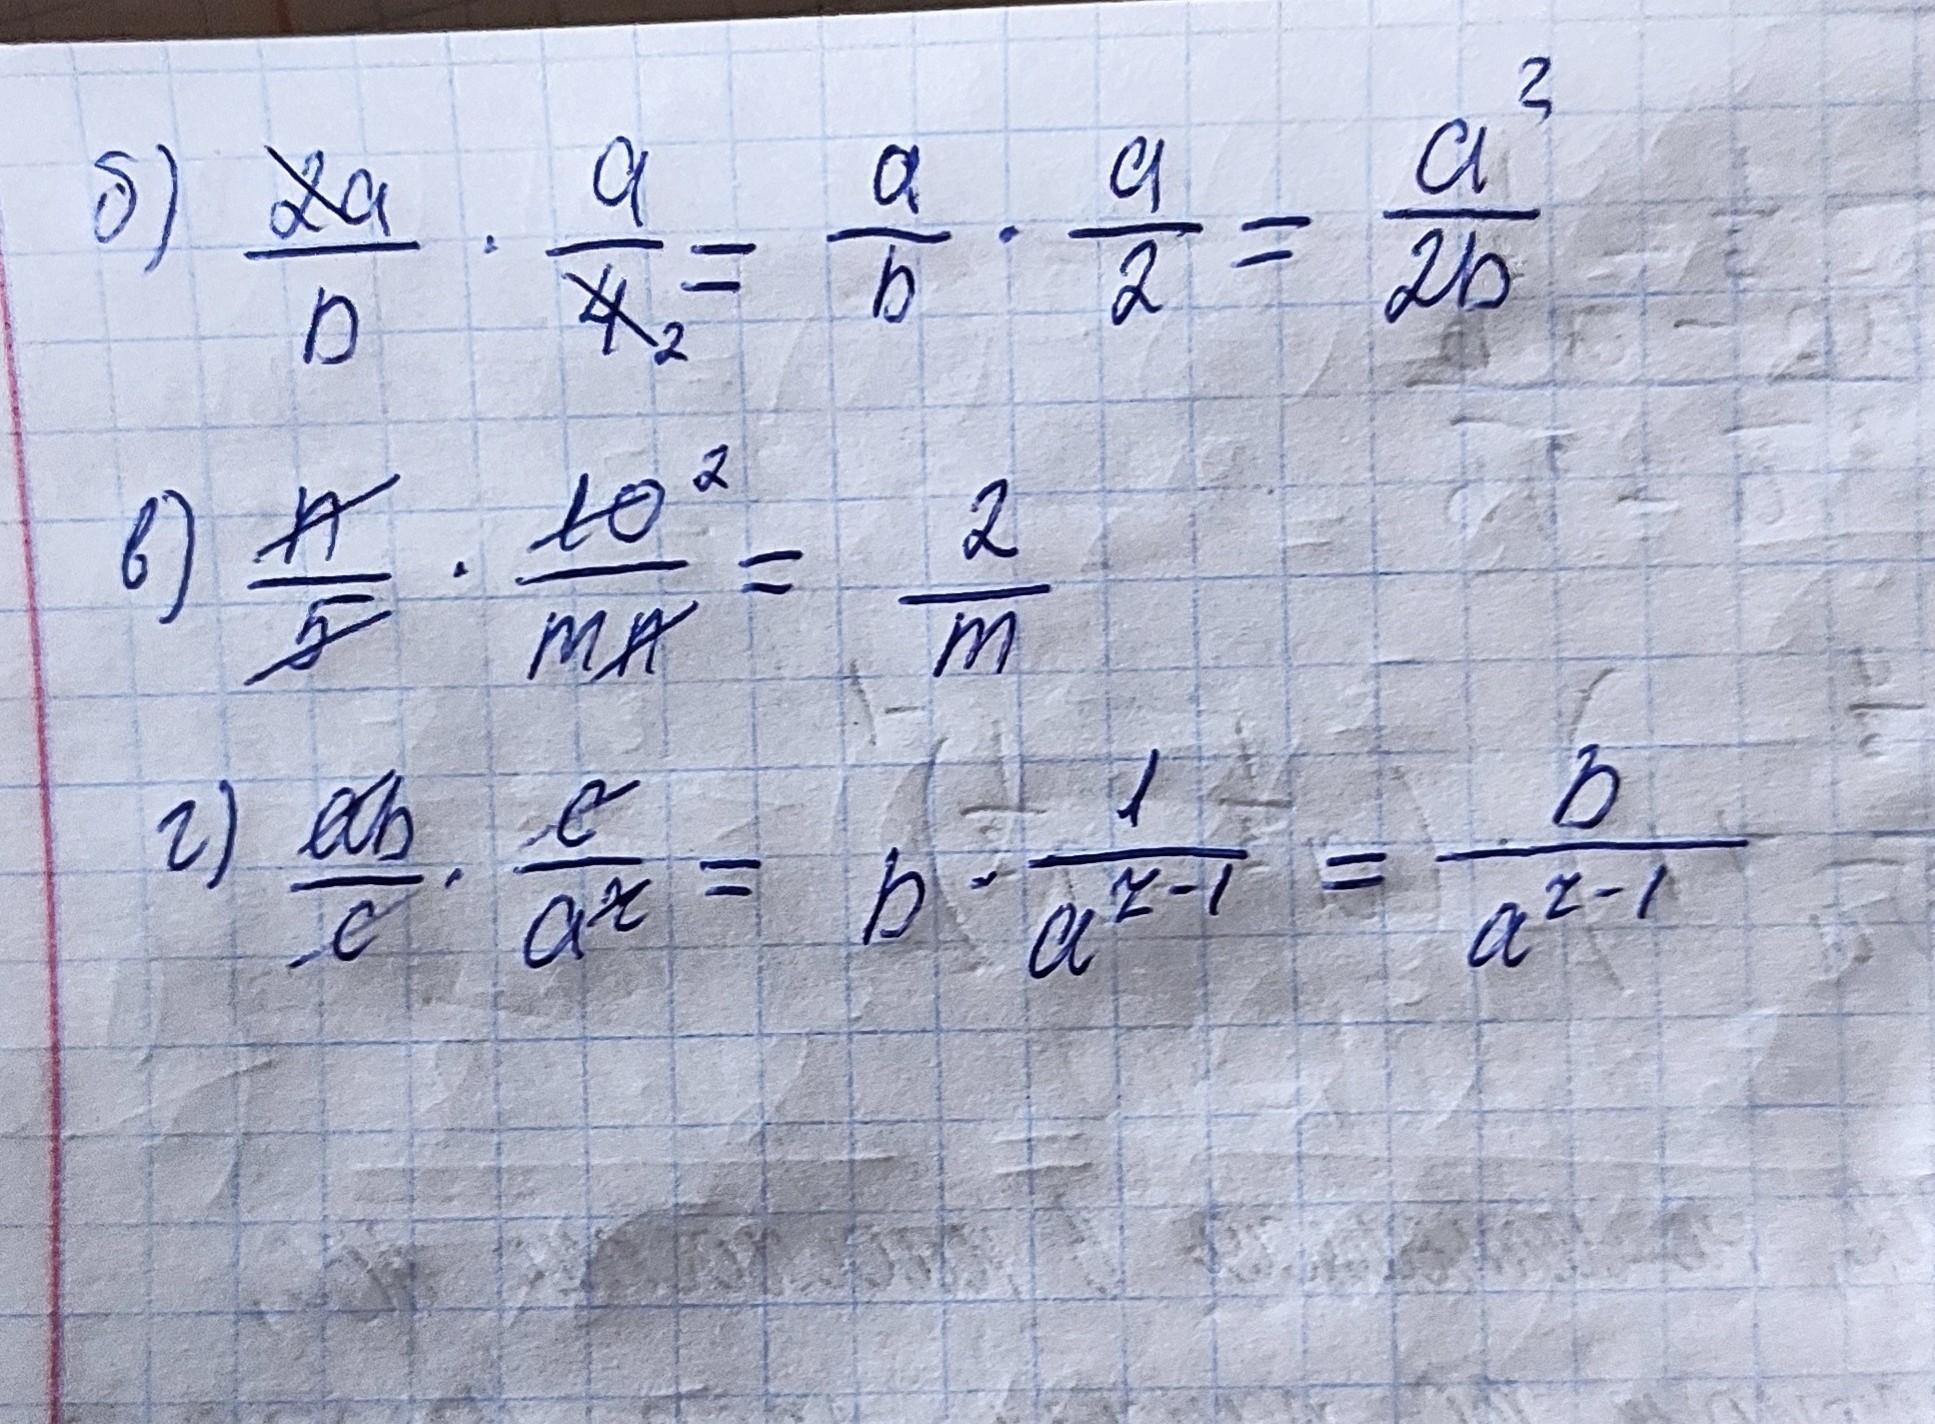 б) 2a/b · a/4 2 = a/b · a/2 = a²/2b
в) n/5 · 10²/mn = 2/m
г) ab/c · c/a^z = b · 1/a^(z-1) = b/a^(z-1)